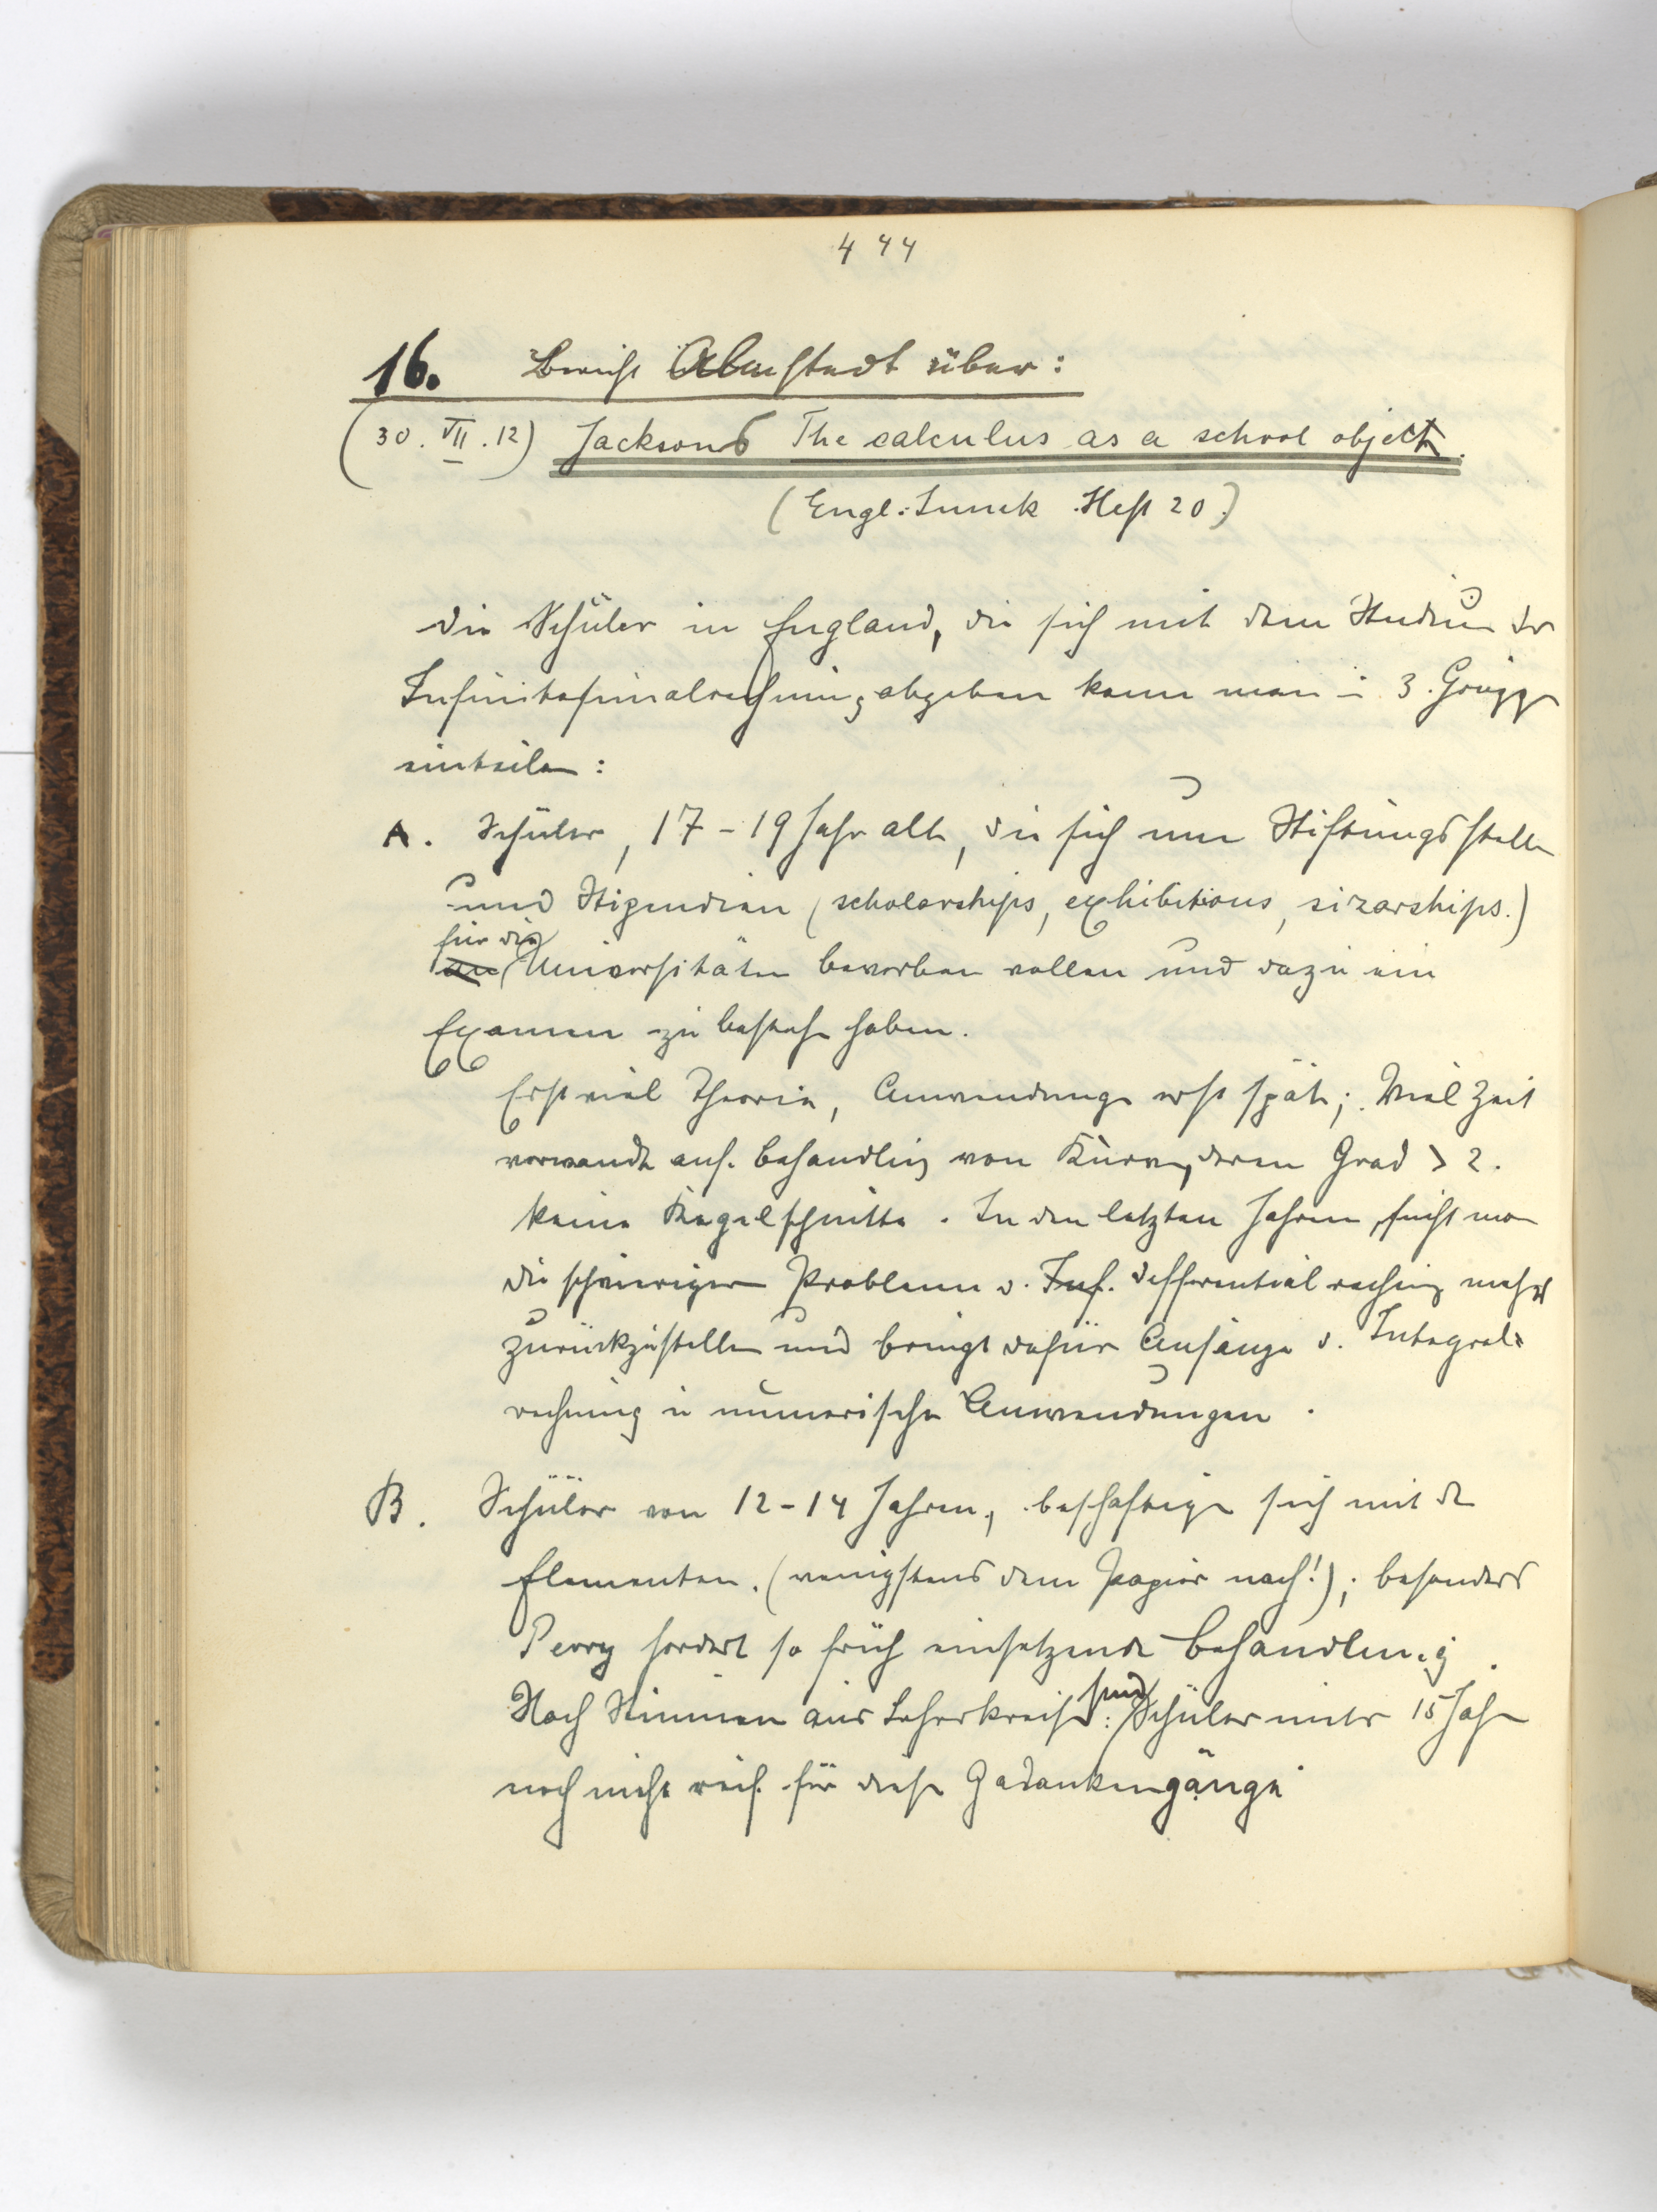 444
16. Bericht Almstedt über:
(30. VII. 12) Jacksons The calculus as a school objekt.
(Engl. Imuk Heft 20)
Die Schüler in England, die sich mit dem Studium der
Infinitesimalrechnung abgeben kann man in 3 Gruppen
einteilen:
A. Schüler, 17-19 Jahr alt, die sich um Stiftungsstellen
und Stipendien (scholarships, exhibitions, sizarships.)
für die
an Universitäten bewerben wollen und dazu ein
Examen zu bestehen haben.
Erst viel Theorie, Anwendungen erst spät; Viel Zeit
verwandt auf Behandlung von Kurven, deren Grad > 2.
keine Kegelschnitte. In den letzten Jahren, sucht man
die schwierigen Probleme d. Inf. Differentialrechnung mehr
zurückzustellen und bringt dafür Anfänge d. Integral-
rechnung u numerische Anwendungen.
B. Schüler von 12-14 Jahren, beschäftigen sich mit den
Elementen. (wenigstens dem Papier nach!); besonders
Perry fordert so früh einsetzende Behandlung.
Nach Stimmen aus Lehrerkreisen: Schüler unter 15 Jahren
sind
noch nicht reif für diese Gedankengänge